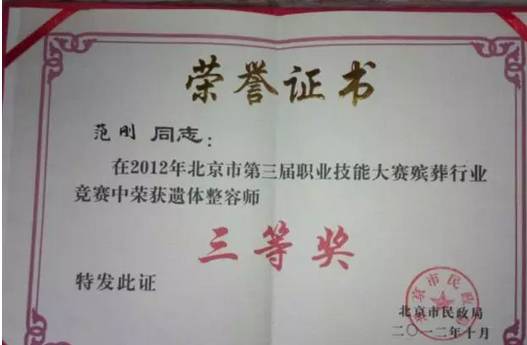 荣誉证书
范刚 同志:
在2012年北京市第三届职业技能大赛殡葬行业
竞赛中荣获遗体整容师
三等奖
特发此证
北京市民政局
北京市民政局
二〇一二年十月